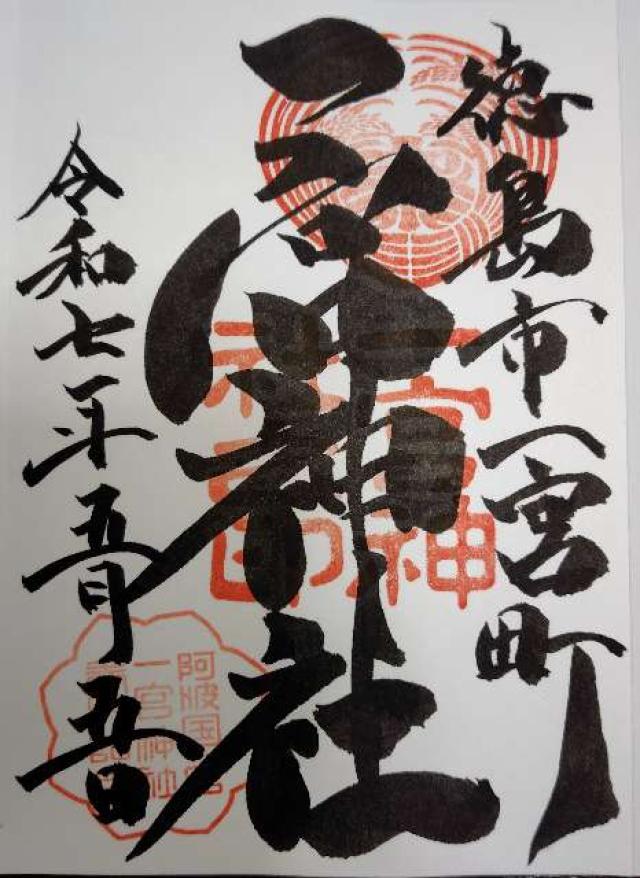 徳島市一宮町
一宮神社
令和七年五月五日
一宮神
社印
阿波国
一宮神社